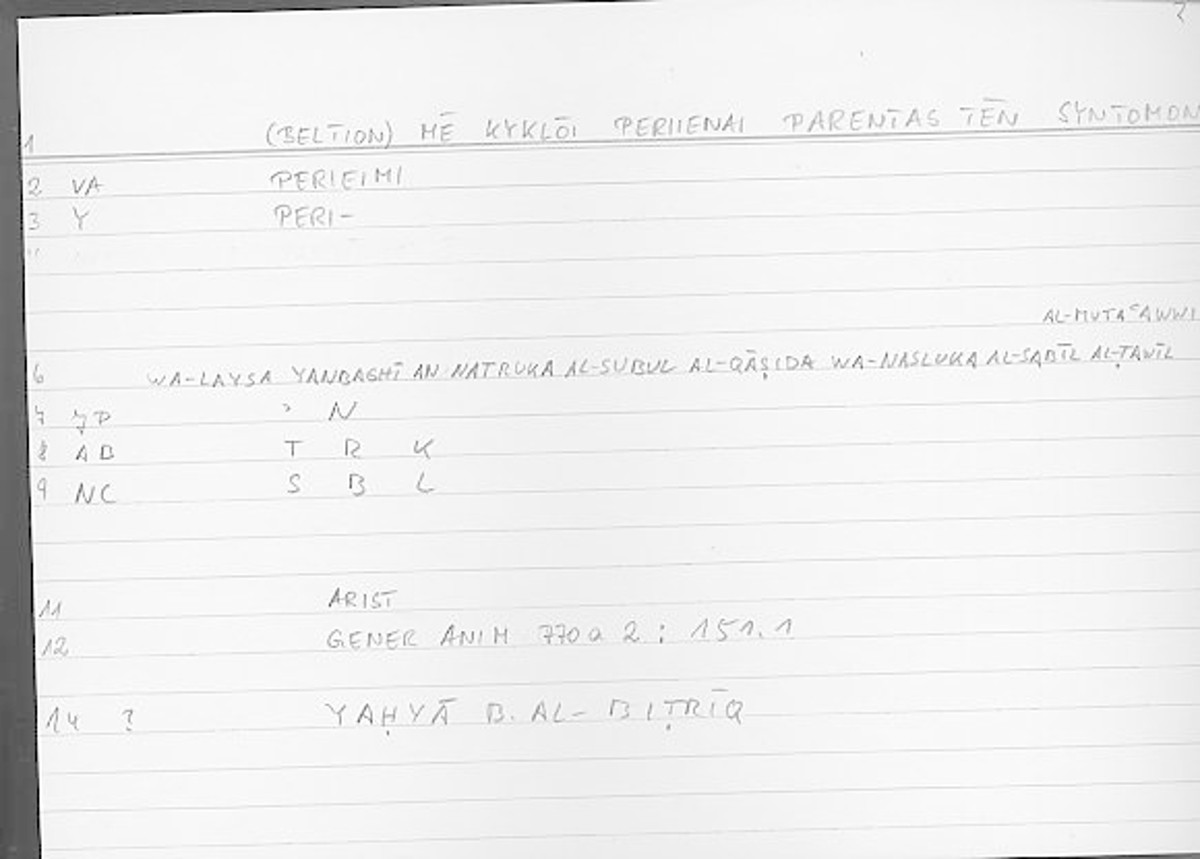 2
1 (BELTĪON) MĒ KYKLŌI PERIIENAI PARENTAS TĒN SYNTOMON
2 VA PERIEIMI
3 Y PERI-
AL-MUTAʿAWWI
6 WA-LAYSA YANBAGHĪ AN NATRUKA AL-SUBUL AL-QĀṢIDA WA-NASLUKA AL-SABĪL AL-ṬAWĪL
7 ʾ N
8 AB T R K
9 NC S B L
11 ARIST
12 GENER ANIM 770a 2 ; 151.1
14 ? YAḤYĀ B. AL-BIṬRĪQ